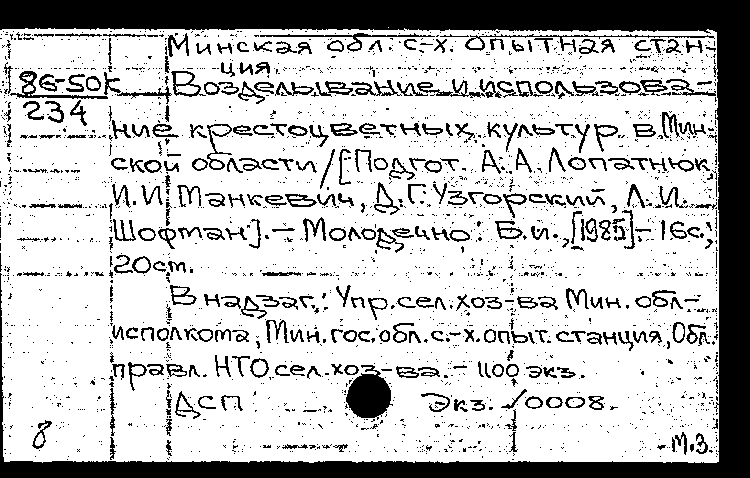 Минская обл. с.-х. опытная стан-
ция.
86-50к Возделывание и использова-
234
ние крестоцветных культур в Мин-
ской области /[Подгот. А.А. Лопатнюк,
И.И. Манкевич, Д.Г. Узгорский, Л.И.
Шофман]. - Молодечно: Б.и., [1985]. - 16с.;
20см.
В надзаг.: Упр. сел. хоз-ва Мин. обл-
исполкома, Мин. гос. обл. с.-х. опыт. станция, Обл.
правл. НТО сел. хоз-ва. - 1100 экз.
ДСП Экз. √0008.
8 М.З.